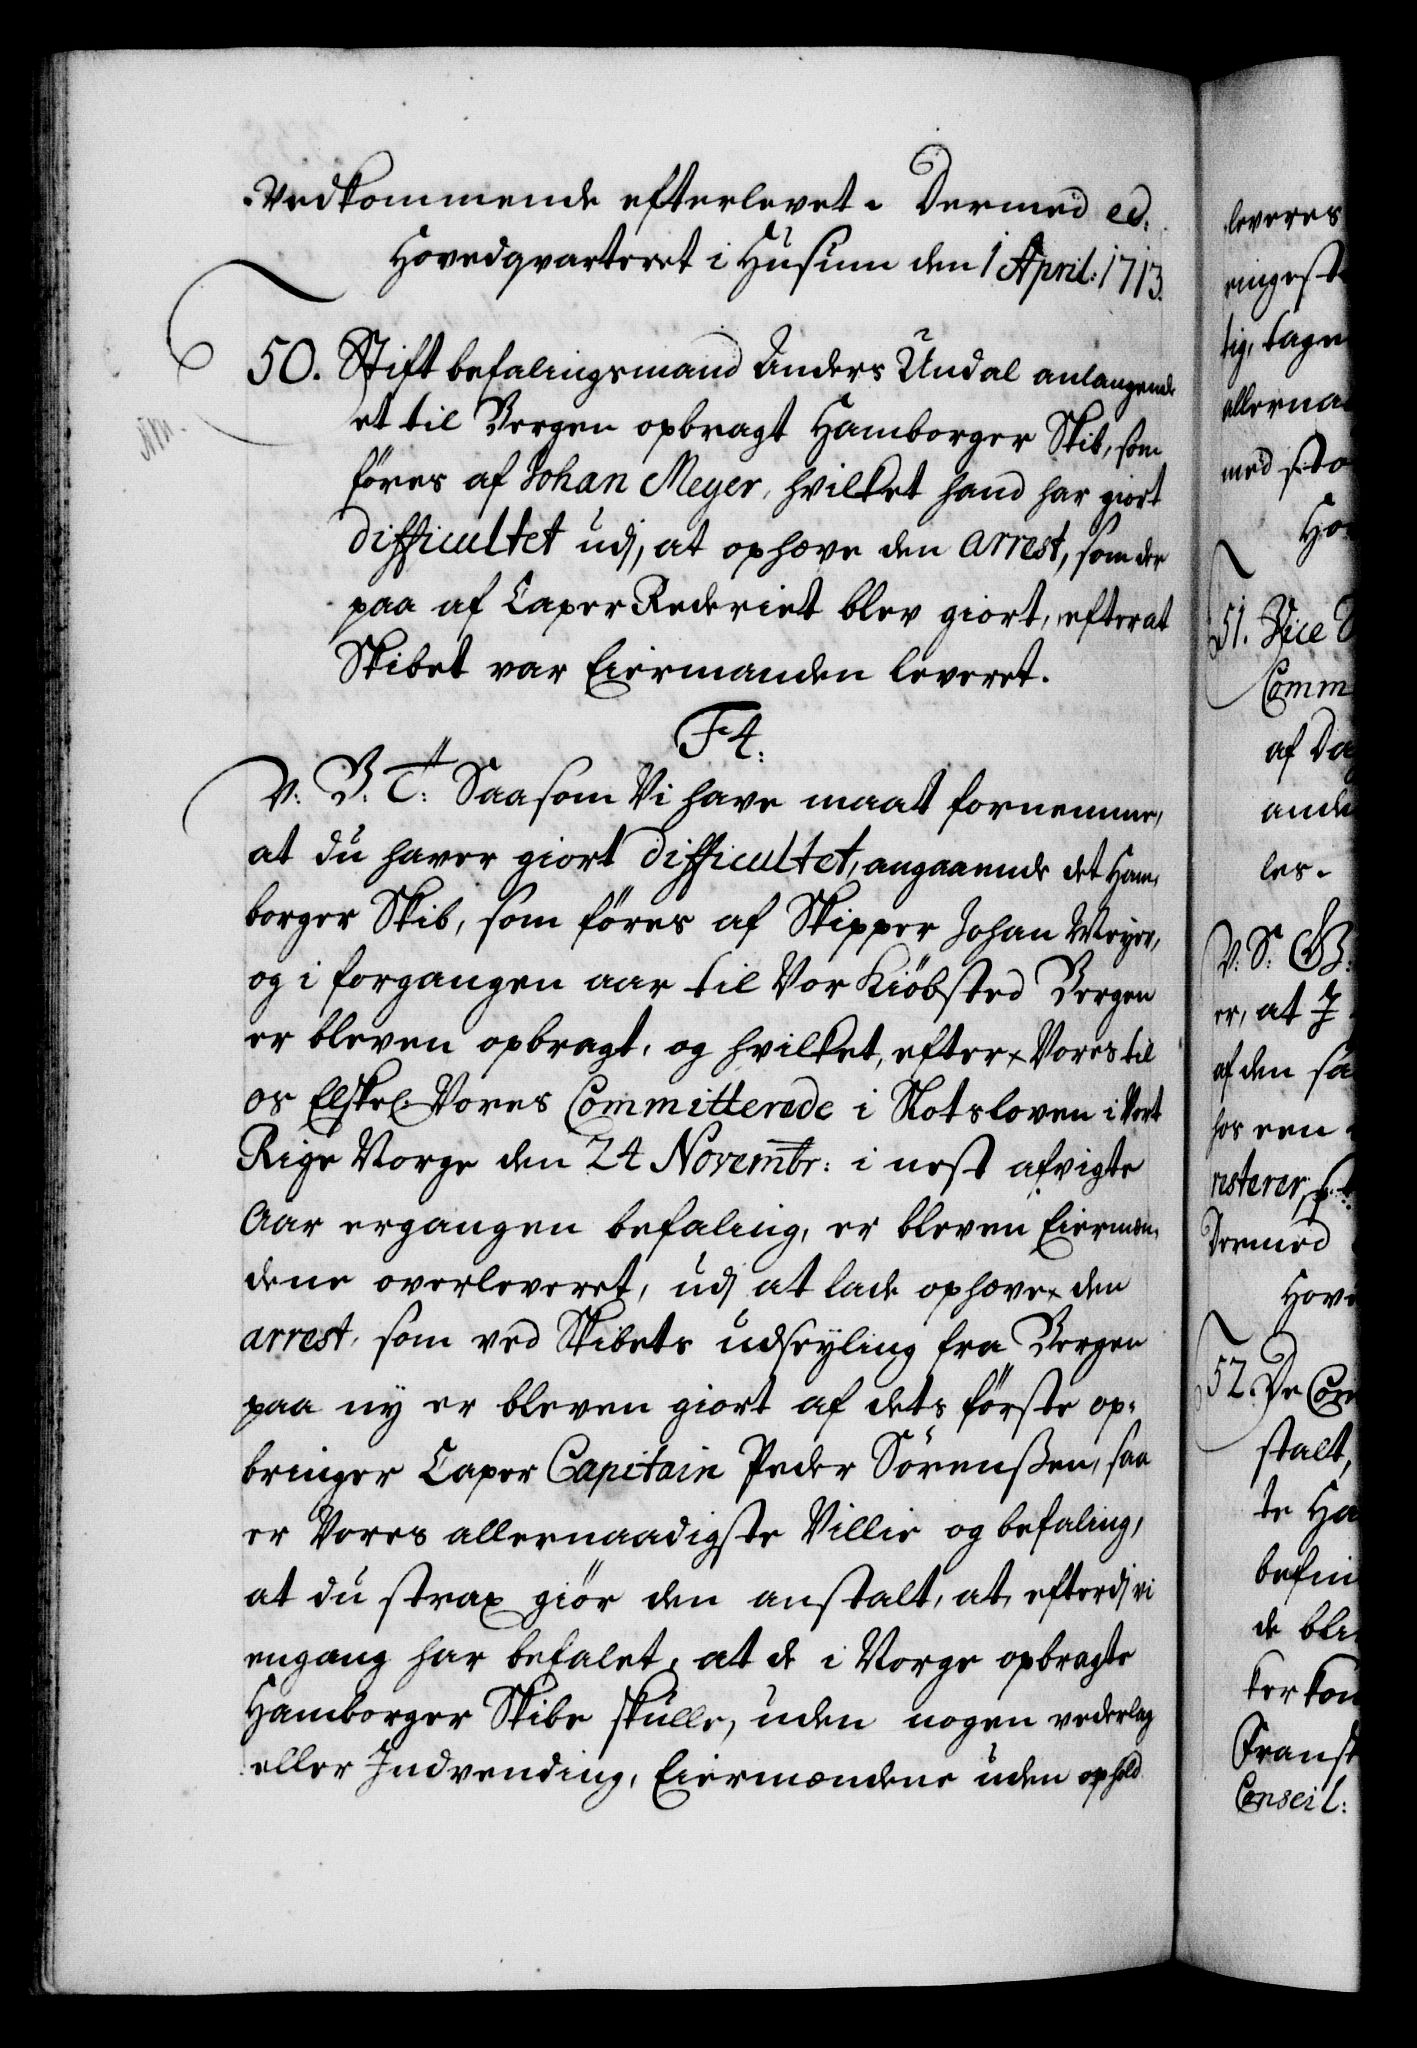 Vedkommende efterlevet. Dermed ed.
Hovedqvarteret i Husum den 1 April: 1713.
50. Stiftbefalingsmand Anders Undal anlangende
et til Bergen opbragt Hamborger Skib, som
föres af Johan Meyer, hvilket hand har giort
difficultet udj, at ophæve den arrest, som der
paa af Caper Rederiet blev giort, efter at
Skibet var Eiermanden leveret.
F4.
V: G: T: Saasom Vi have maat fornemme,
at du haver giort difficultet, angaaende det Ham-
borger Skib, som föres af Skipper Johan Meyer,
og i forgangen aar til Vor Kiöbsted Bergen
er bleven opbragt, og hvilket, efter Vores til
os Elskel. Vores Committerede i Slotsloven i Vort
Rige Norge den 24 Novembr: i nest afvigte
Aar ergangen befaling, er bleven Eiermæn-
dene overleveret, udj at lade ophæve den
arrest, som ved Skibets udseyling fra Bergen
paa ny er bleven giort af dets förste op-
bringer Caper Capitain Peder Sörenßen, saa
er Vores allernaadigste Villie og befaling,
at du strax giör den anstalt, at, efterdj vi
engang har befalet, at de i Norge opbragte
Hamborger Skibe skulle, uden nogen vederlag
eller Indvending, Eiermændene uden ophold
leveres
eingest
tig, tage
allerna
med sto
Ho
51. Vice
Comm
af Da
ande
les.
V: S: G:
er, at I
af den sa
hos een
resterer,
Dermed
Hove
52. De Com
stalt,
te Ha
befin
de bli
ker kon
Fransk
Conseil: